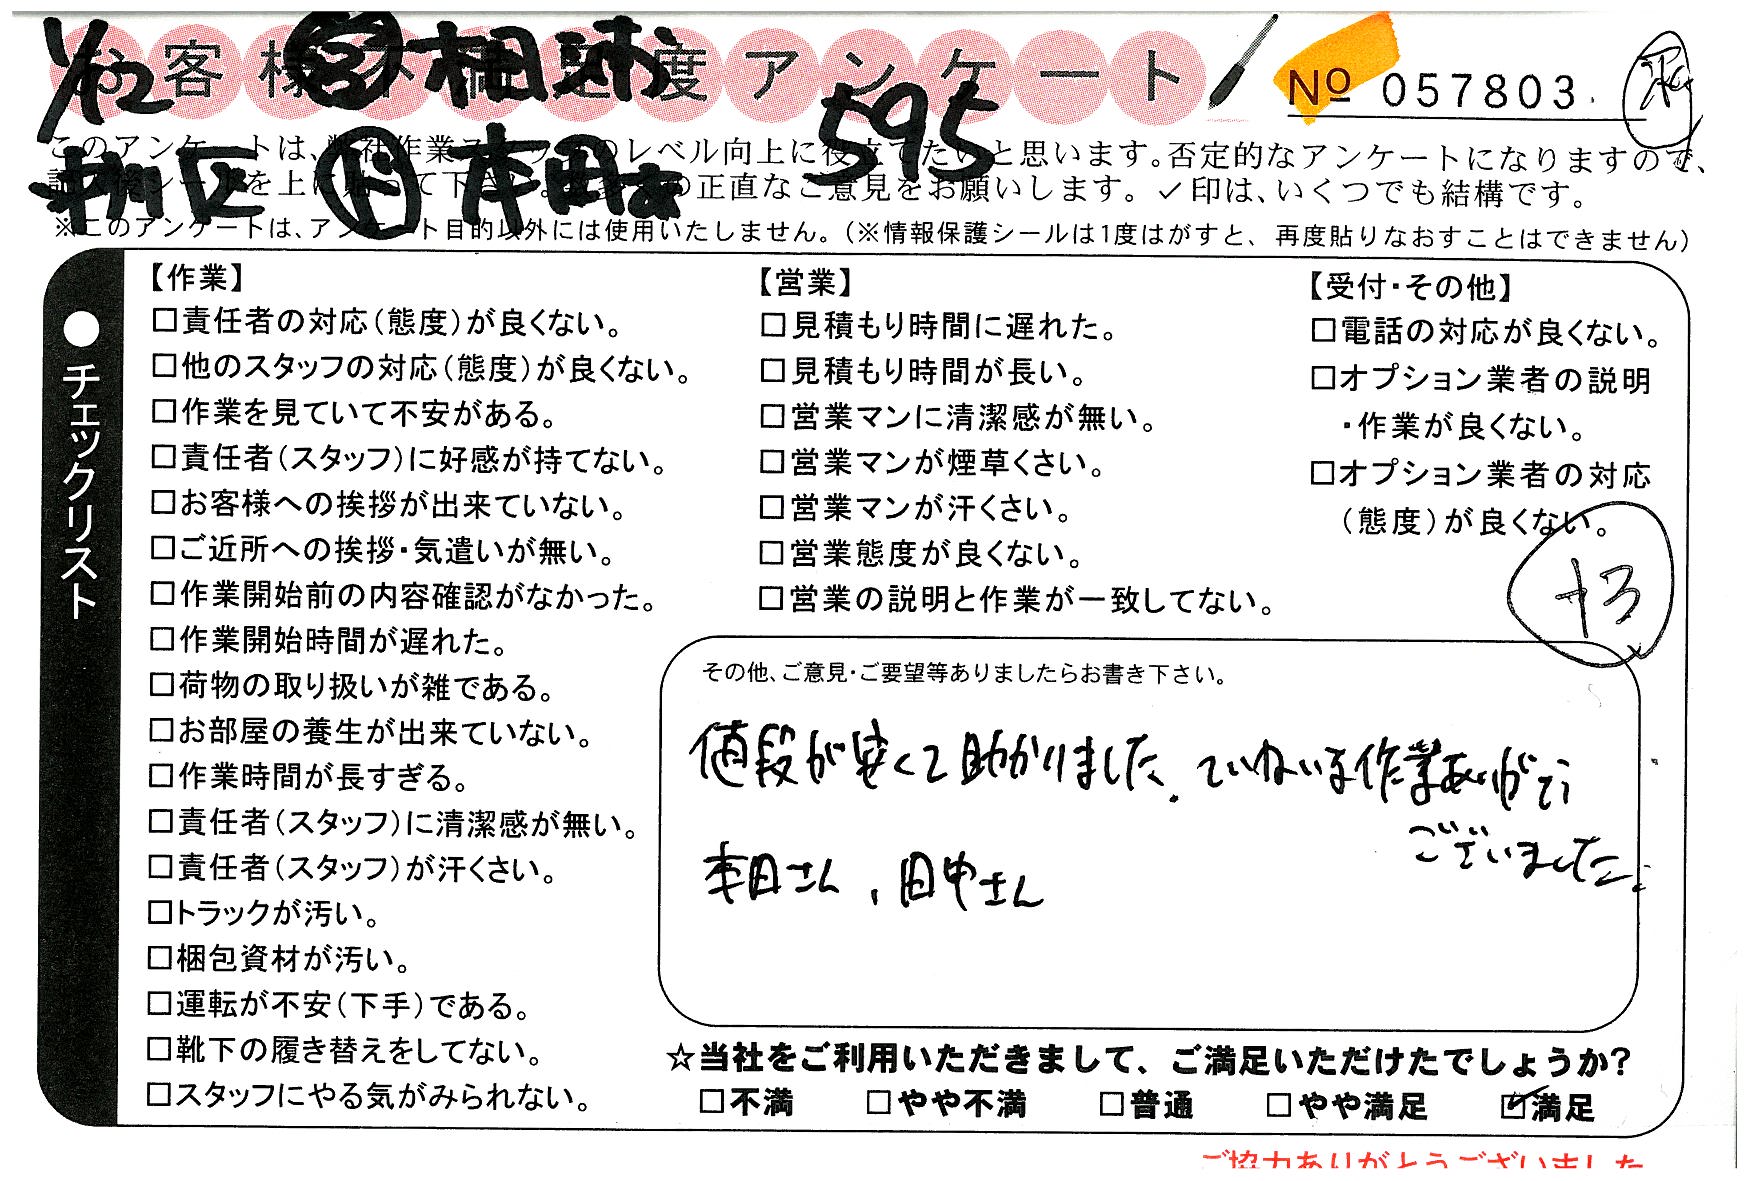 お客様不満足度アンケート
1/12 営 相浦
595
No 057803
このアンケートは、弊社作業スタッフのレベル向上に役立てたいと思います。否定的なアンケートになりますので、
記入後シールを上に貼って下さい。お客様の正直なご意見をお願いします。✓印は、いくつでも結構です。
区 本田
※このアンケートは、アンケート目的以外には使用いたしません。（※情報保護シールは1度はがすと、再度貼りなおすことはできません）
●チェックリスト
【作業】
□責任者の対応（態度）が良くない。
□他のスタッフの対応（態度）が良くない。
□作業を見ていて不安がある。
□責任者（スタッフ）に好感が持てない。
□お客様への挨拶が出来ていない。
□ご近所への挨拶・気遣いが無い。
□作業開始前の内容確認がなかった。
□作業開始時間が遅れた。
□荷物の取り扱いが雑である。
□お部屋の養生が出来ていない。
□作業時間が長すぎる。
□責任者（スタッフ）に清潔感が無い。
□責任者（スタッフ）が汗くさい。
□トラックが汚い。
□梱包資材が汚い。
□運転が不安（下手）である。
□靴下の履き替えをしてない。
□スタッフにやる気がみられない。
【営業】
□見積もり時間に遅れた。
□見積もり時間が長い。
□営業マンに清潔感が無い。
□営業マンが煙草くさい。
□営業マンが汗くさい。
□営業態度が良くない。
□営業の説明と作業が一致してない。
【受付・その他】
□電話の対応が良くない。
□オプション業者の説明
・作業が良くない。
□オプション業者の対応
（態度）が良くない。
+3
その他、ご意見・ご要望等ありましたらお書き下さい。
値段が安くて助かりました。ていねいな作業ありがとう
ございました。
本田さん、田中さん
☆当社をご利用いただきまして、ご満足いただけたでしょうか?
□不満 □やや不満 □普通 □やや満足 ☑満足
ご協力ありがとうございました